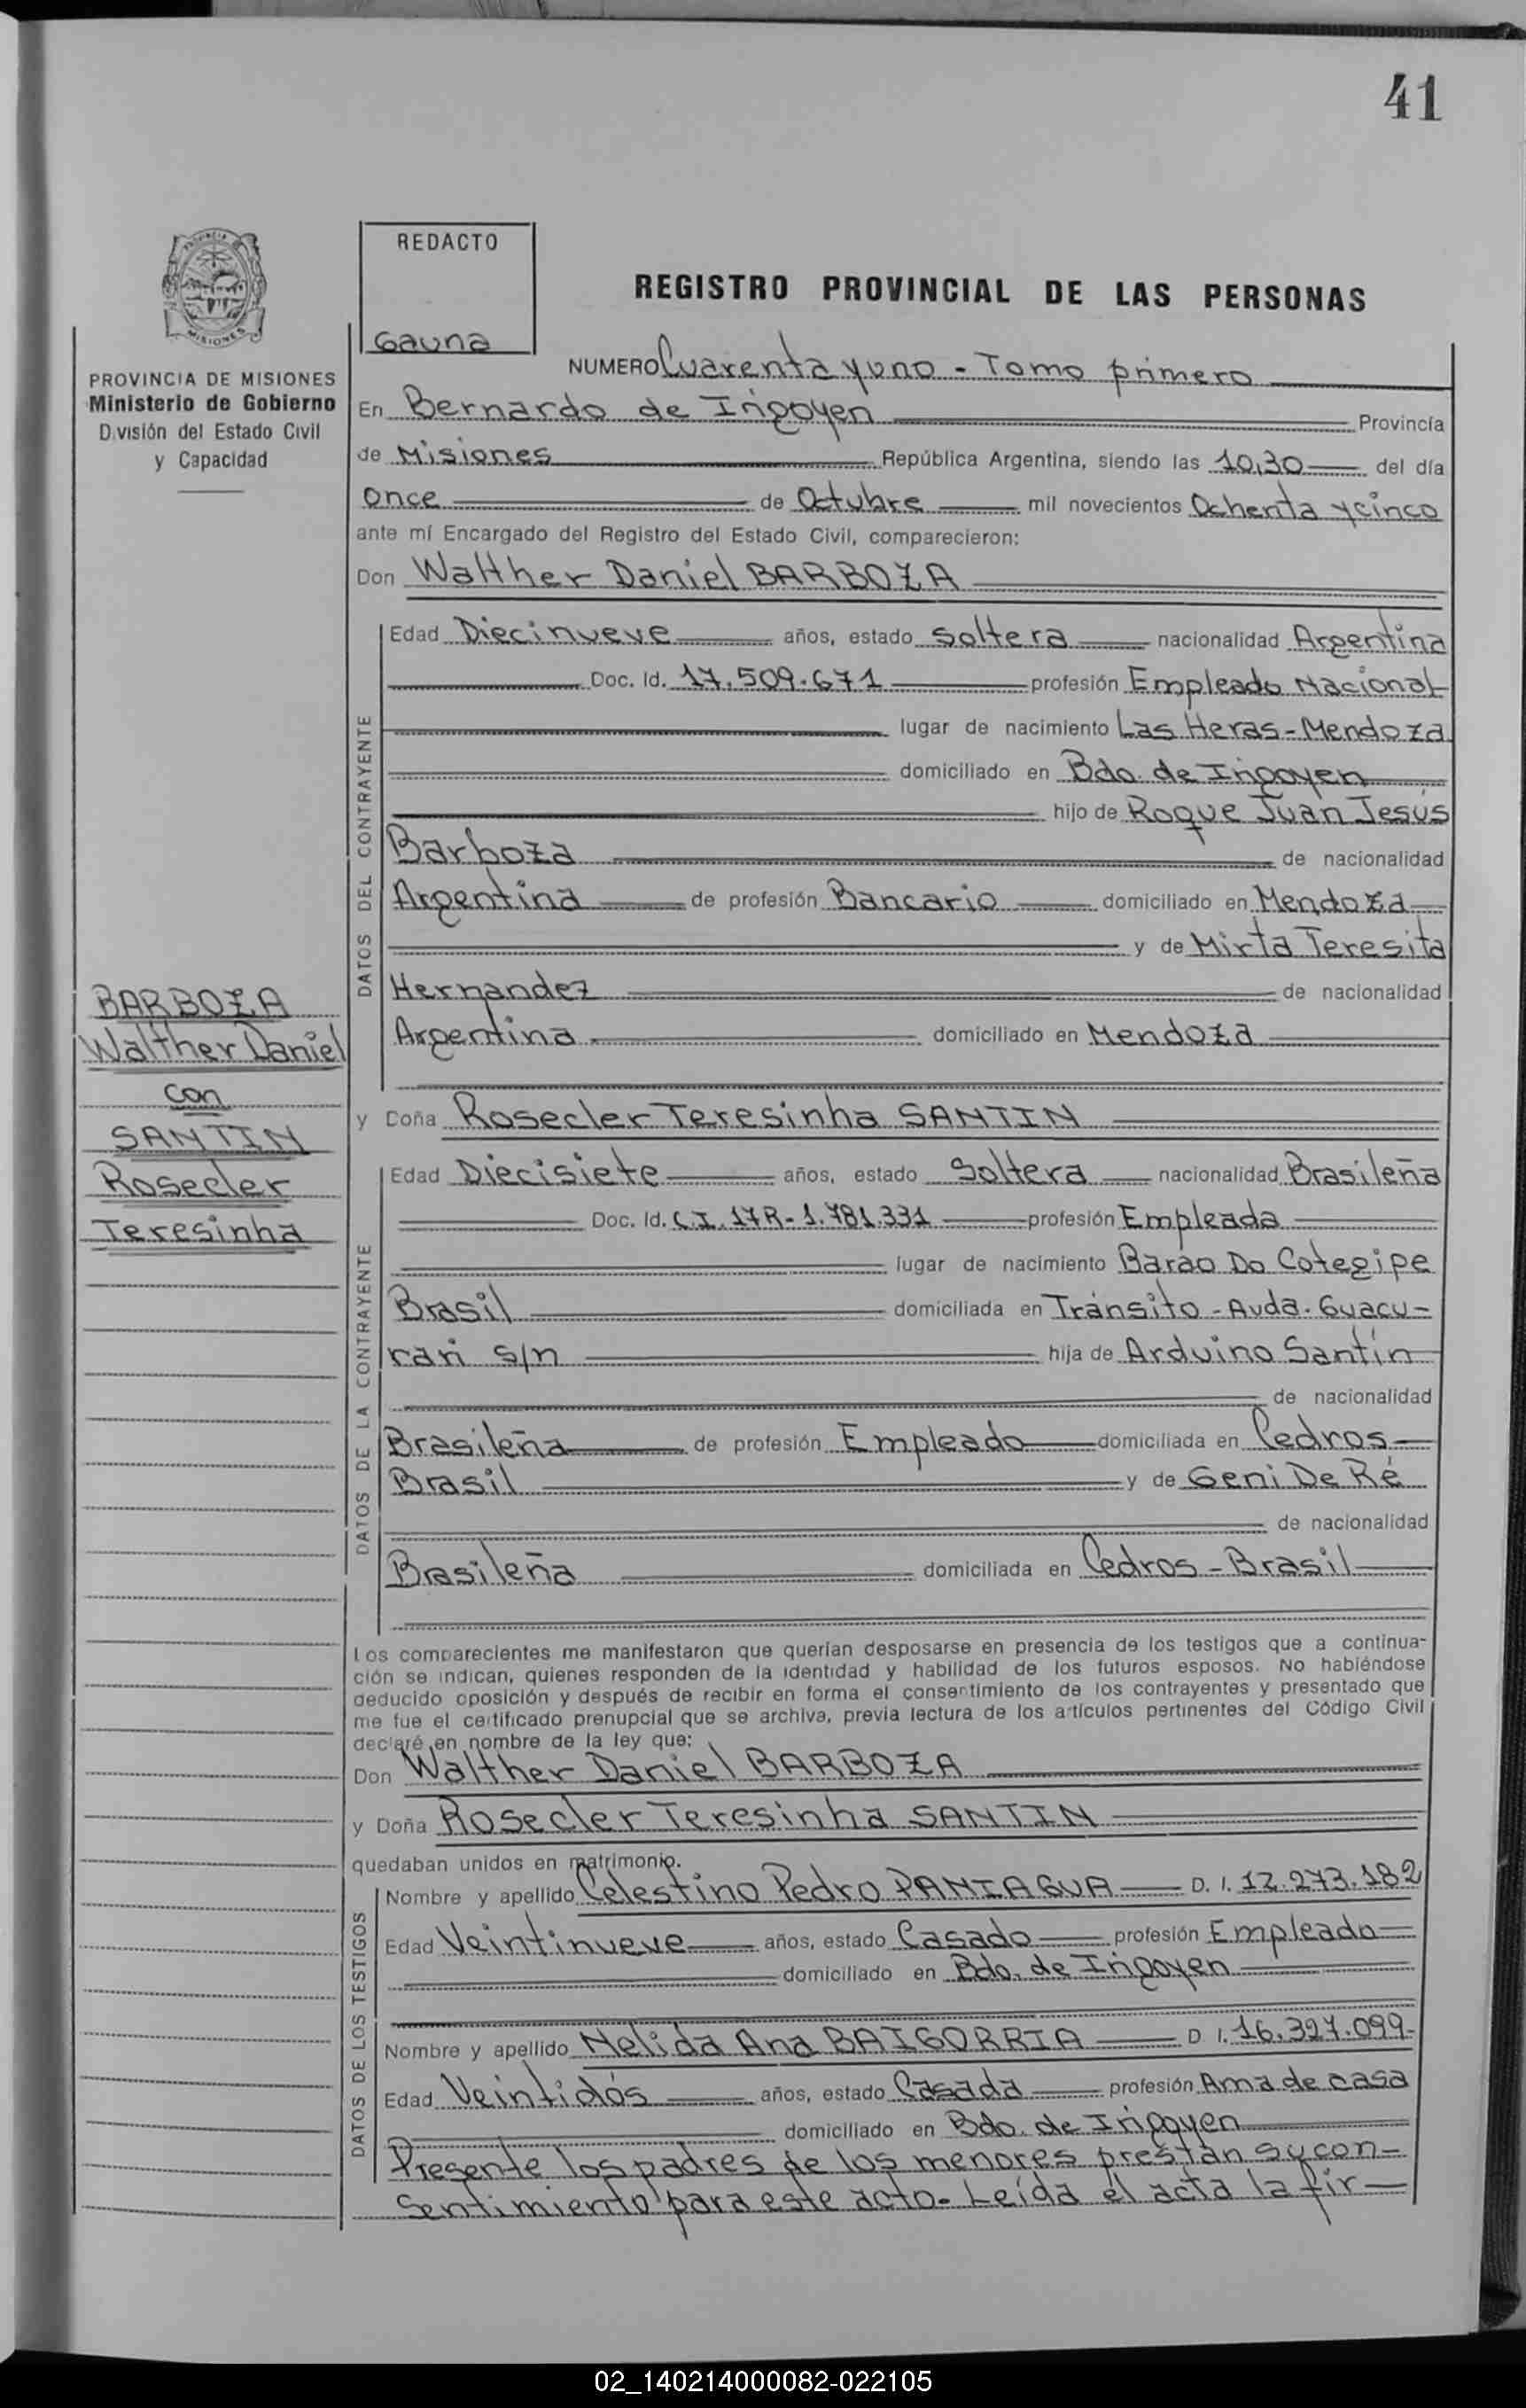 41
REDACTO
Gauna
REGISTRO PROVINCIAL DE LAS PERSONAS
MISIONES
PROVINCIA DE MISIONES
Ministerio de Gobierno
División del Estado Civil
y Capacidad
NUMERO Cuarenta y uno - Tomo primero
En Bernardo de Irigoyen Provincia
de Misiones República Argentina, siendo las 10,30 del día
once de Octubre mil novecientos Ochenta y cinco
ante mí Encargado del Registro del Estado Civil, comparecieron:
Don Walther Daniel BARBOZA
DATOS DEL CONTRAYENTE
Edad Diecinueve años, estado soltera nacionalidad Argentina
Doc. Id. 17.509.671 profesión Empleado Nacional
lugar de nacimiento Las Heras - Mendoza
domiciliado en Bdo. de Irigoyen
hijo de Roque Juan Jesús
Barboza de nacionalidad
Argentina de profesión Bancario domiciliado en Mendoza
y de Mirta Teresita
Hernandez de nacionalidad
Argentina domiciliado en Mendoza
BARBOZA
Walther Daniel
con
SANTIN
Rosecler
Teresinha
y Doña Rosecler Teresinha SANTIN
DATOS DE LA CONTRAYENTE
Edad Diecisiete años, estado Soltera nacionalidad Brasileña
Doc. Id. C.I. 17R-1.781.331 profesión Empleada
lugar de nacimiento Barão Do Cotegipe
Brasil domiciliada en Tránsito - Avda. Guacu-
rarí s/n hija de Arduino Santín
de nacionalidad
Brasileña de profesión Empleado domiciliada en Cedros
Brasil y de Geni De Ré
de nacionalidad
Brasileña domiciliada en Cedros - Brasil
Los comparecientes me manifestaron que querían desposarse en presencia de los testigos que a continua-
ción se indican, quienes responden de la identidad y habilidad de los futuros esposos. No habiéndose
deducido oposición y después de recibir en forma el consentimiento de los contrayentes y presentado que
me fue el certificado prenupcial que se archiva, previa lectura de los artículos pertinentes del Código Civil
declaré en nombre de la ley que:
Don Walther Daniel BARBOZA
y Doña Rosecler Teresinha SANTIN
quedaban unidos en matrimonio.
DATOS DE LOS TESTIGOS
Nombre y apellido Celestino Pedro PANIAGUA D. I. 12.273.182
Edad Veintinueve años, estado Casado profesión Empleado
domiciliado en Bdo. de Irigoyen
Nombre y apellido Nelida Ana BAIGORRIA D I. 16.327.099-
Edad Veintidós años, estado Casada profesión Ama de casa
domiciliado en Bdo. de Irigoyen
Presente los padres de los menores prestan su con-
sentimiento para este acto. Leída el acta la fir-
02_140214000082-022105